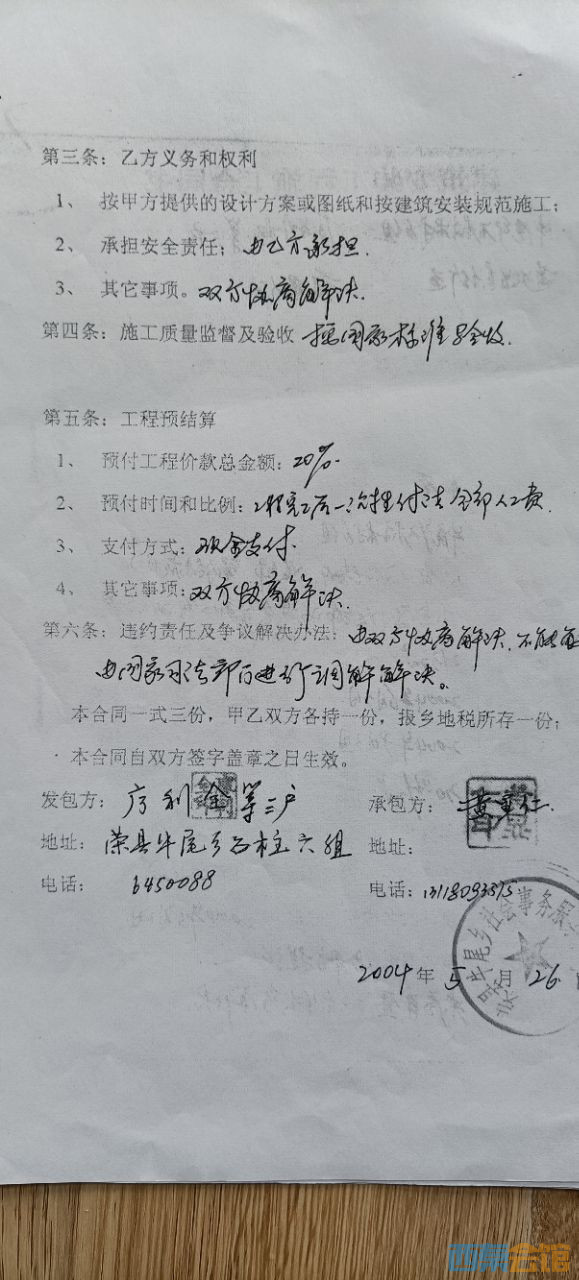 第三条：乙方义务和权利
1、 按甲方提供的设计方案或图纸和按建筑安装规范施工；
2、 承担安全责任；由乙方承担.
3、 其它事项。双方协商解决.
第四条：施工质量监督及验收 按国家标准验收.
第五条：工程预结算
1、 预付工程价款总金额：20%.
2、 预付时间和比例：工程完工后一次性付清全部人工费.
3、 支付方式：现金支付.
4、 其它事项：双方协商解决.
第六条：违约责任及争议解决办法：由双方协商解决.不能
由国家司法部门进行调解解决。
本合同一式三份，甲乙双方各持一份，报乡地税所存一份；
本合同自双方签字盖章之日生效。
发包方： 利金等三户 承包方：
地址：荣县牛尾乡石柱六组 地址：
电话： 6450088 电话：
牛尾乡社会事务服
2004年5月26
西风会馆